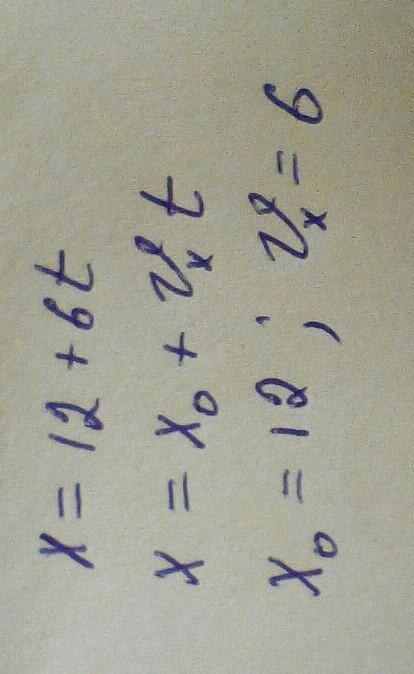 x = 12 + 6t
x = x₀ + vₓt
x₀ = 12 ; vₓ = 6